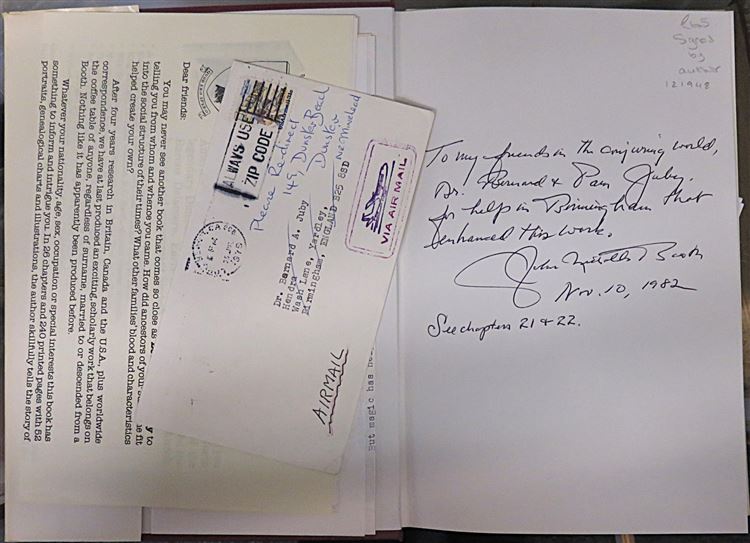 Dear friends:
You may never see another book that comes so close as to
telling you from whom and whence you came. How did ancestors of your fit
into the social structure of their times? What other families' blood and characteristics
helped create your own?
After four years research in Britain, Canada and the U.S.A., plus worldwide
correspondence, we have at last produced an exciting, scholarly work that belongs on
the coffee table of anyone, regardless of surname, married to or descended from a
Booth. Nothing like it has apparently been produced before.
Whatever your nationality, age, sex, occupation or special interests this book has
something to inform and intrigue you. In 26 chapters and 240 printed pages with 52
portraits, genealogical charts and illustrations, the author skillfully tells the story of
ALWAYS USE
ZIP CODE
1975
Please Re-direct
149, Dunster Road
Dunster
nr Minehead
Dr. Bernard A. Juby
Hendra
Wash Lane, Yardley,
Birmingham, ENGLAND B25 8SD
VIA AIR MAIL
AIRMAIL
But magic has
Signed
by
author
121948
To my friends in the conjuring world,
Dr. Bernard & Pam Juby.
for help in Birmingham that
enhanced this work.
John Booth
Nov. 10, 1982
See chapters 21 & 22.